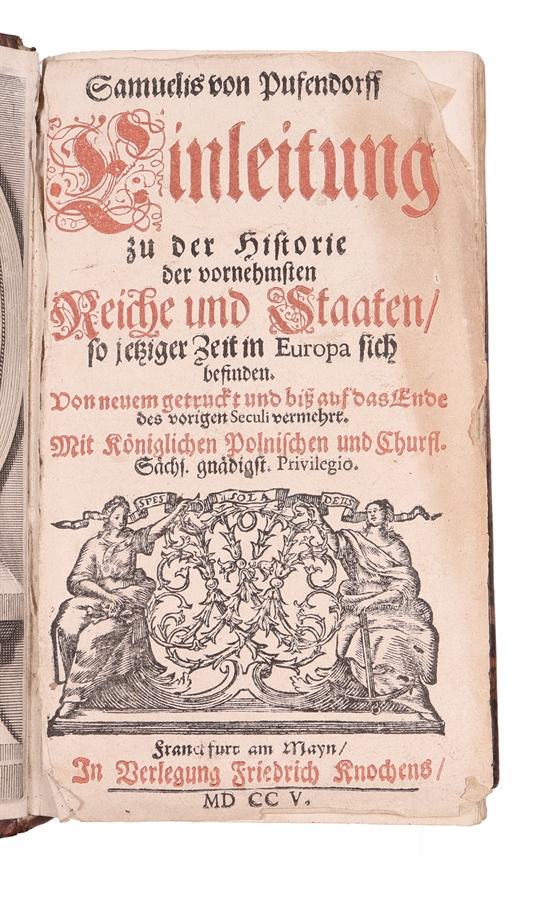 Samuelis von Pufendorff
Einleitung
zu der Historie
der vornehmsten
Reiche und Staaten/
so jetziger Zeit in Europa sich
befinden.
Von neuem getruckt und biß auf das Ende
des vorigen Seculi vermehrt.
Mit Königlichen Polnischen und Churfl.
Sächs. gnädigst. Privilegio.
SPES SOLA DEUS
Franckfurt am Mayn/
In Verlegung Friedrich Knochens/
MD CC V.